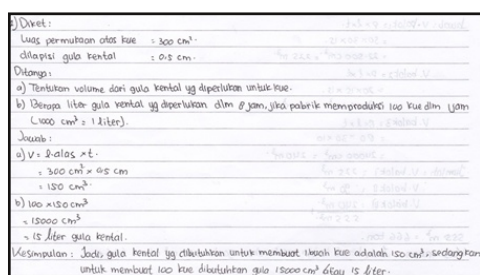 2) Diket:
Luas permukaan atas kue = 300 cm².
dilapisi gula kental = 0.5 cm.
Ditanya:
a) Tentukan volume dari gula kental yg diperlukan untuk kue.
b) Berapa liter gula kental yg diperlukan dlm 8 jam, jika pabrik memproduksi 100 kue dlm 1 jam
(1000 cm³ = 1 liter).
Jawab:
a) V = l.alas × t.
= 300 cm² × 0.5 cm
= 150 cm³.
b) 100 × 150 cm³
= 15000 cm³
= 15 liter gula kental.
Kesimpulan: Jadi, gula kental yg dibutuhkan untuk membuat 1 buah kue adalah 150 cm³, sedangkan
untuk membuat 100 kue dibutuhkan gula 15000 cm³ atau 15 liter.